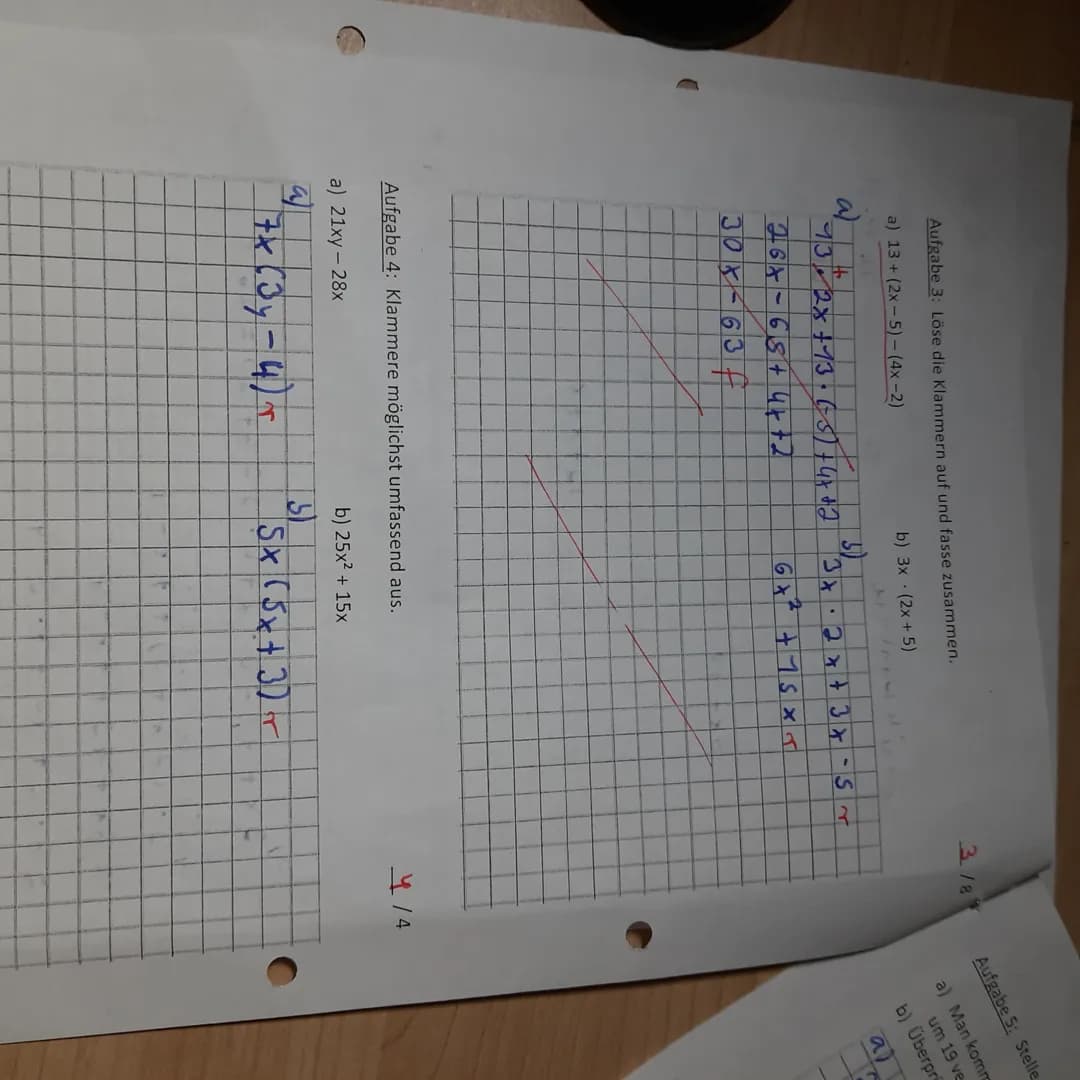 Aufgabe 3: Löse die Klammern auf und fasse zusammen.
3 / 8
a) 13 + (2x – 5) – (4x – 2)
b) 3x · (2x + 5)
a) 13 · 2x + 13 · (-5) + 4x + 2
+
26x - 65 + 4x + 2
30x - 63 f
b) 3x · 2x + 3x - 5 r
6x² + 15x r
Aufgabe 4: Klammere möglichst umfassend aus.
4 / 4
a) 21xy – 28x
b) 25x² + 15x
a) 7x (3y - 4) r
b) 5x (5x + 3) r
Aufgabe 5: Stelle
a) Man komm
um 19 ve
b) Überpr
a)